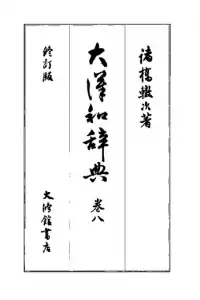 諸橋轍次著
大漢和辞典 巻八
修訂版
大修館書店